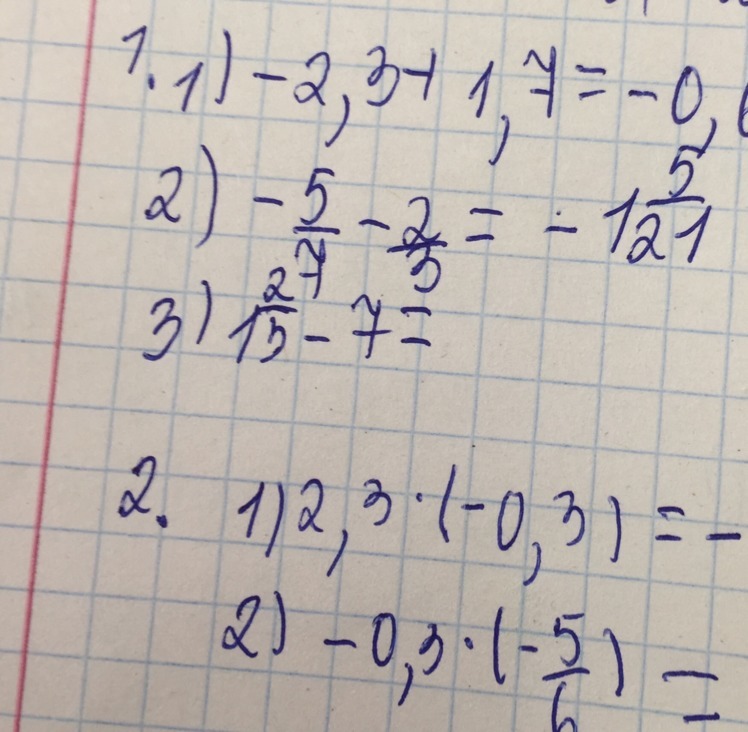 1. 1) -2,3+1,7=-0,6
2) -5/7 - 2/3 = -1 5/21
3) 1 2/5 - 7 =
2. 1) 2,3·(-0,3) = -
2) -0,3·(-5/6) =